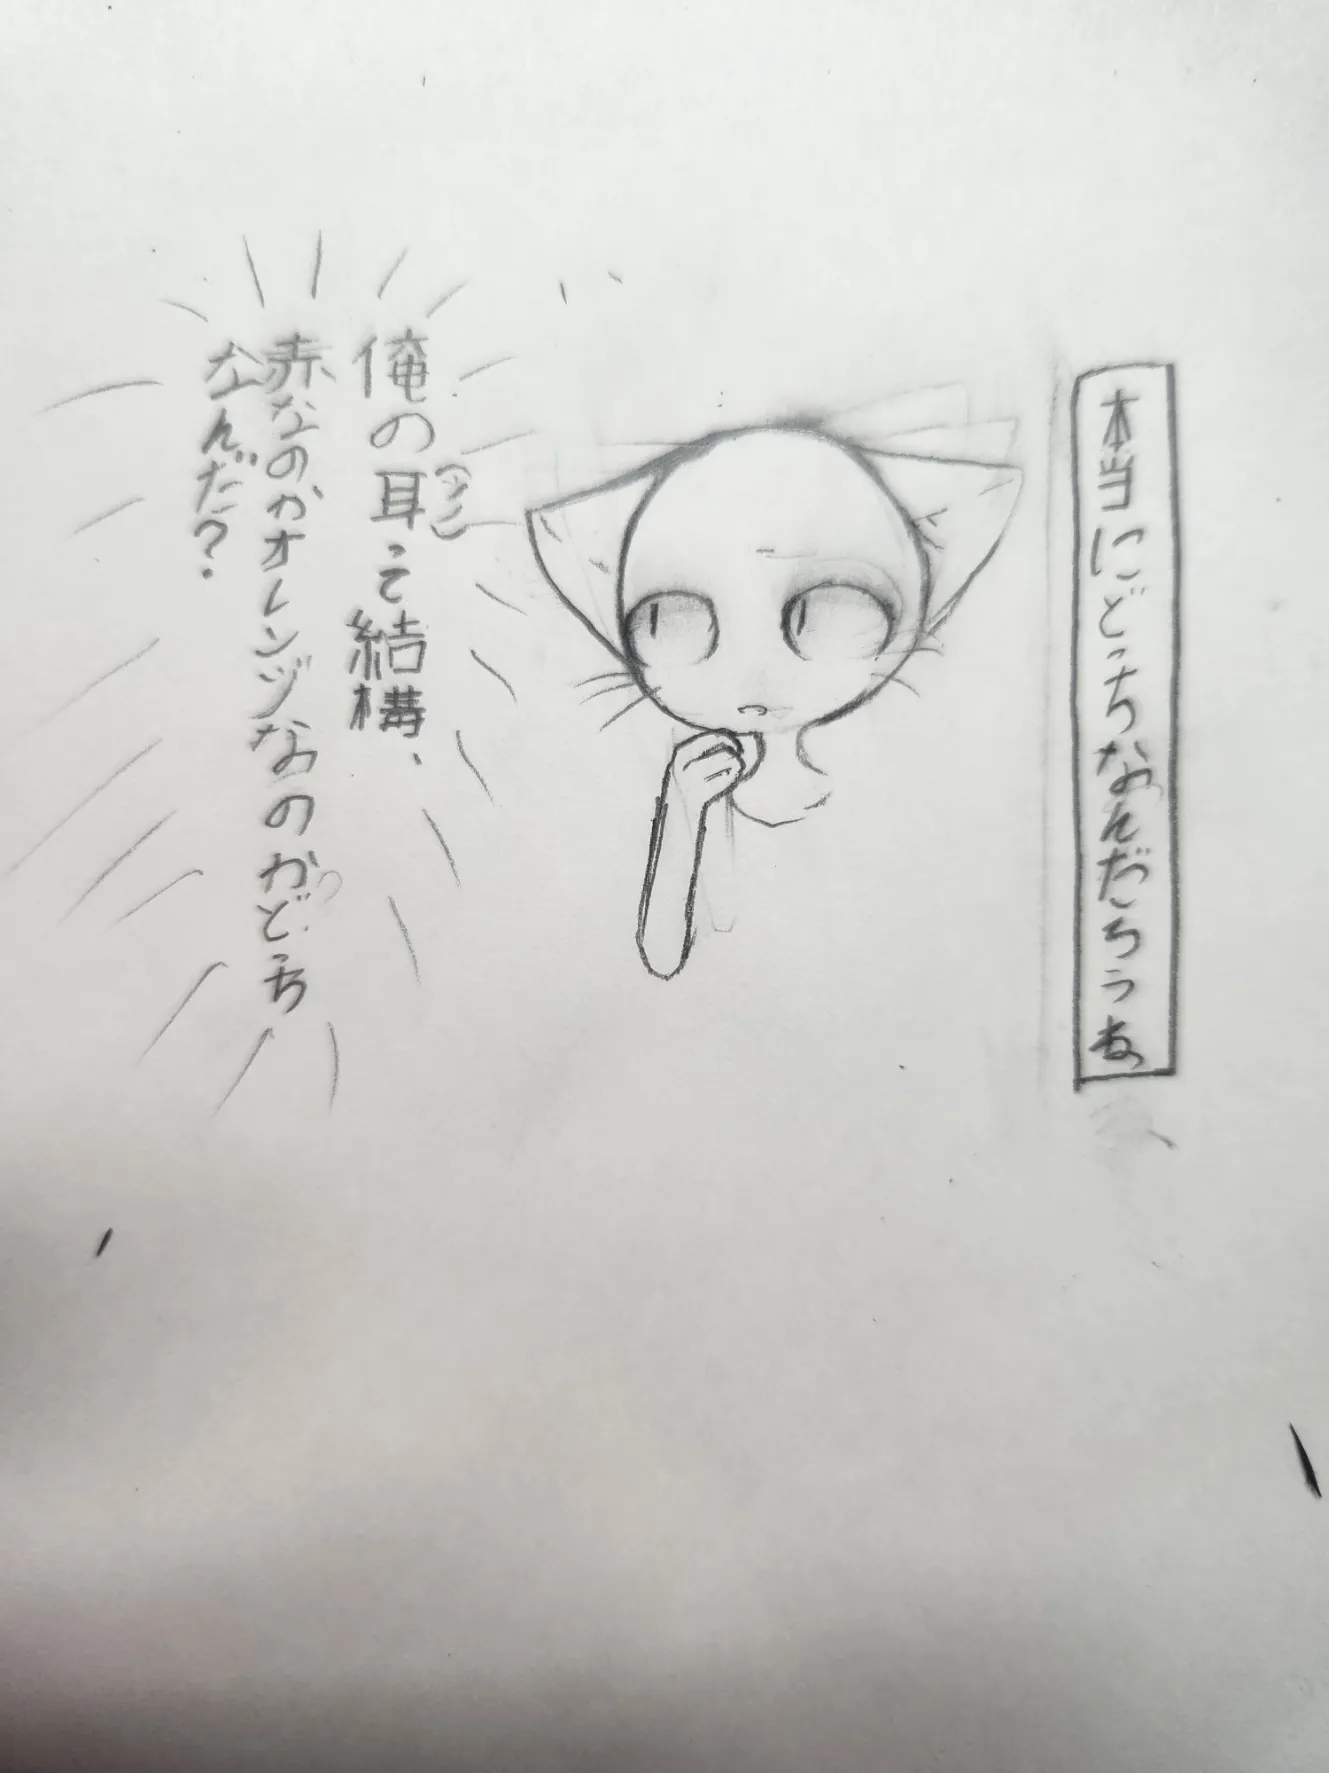 本当にどっちなんだろうね
俺の耳って結構、
(メイン)
赤なのかオレンジなのかどっち
なんだ？